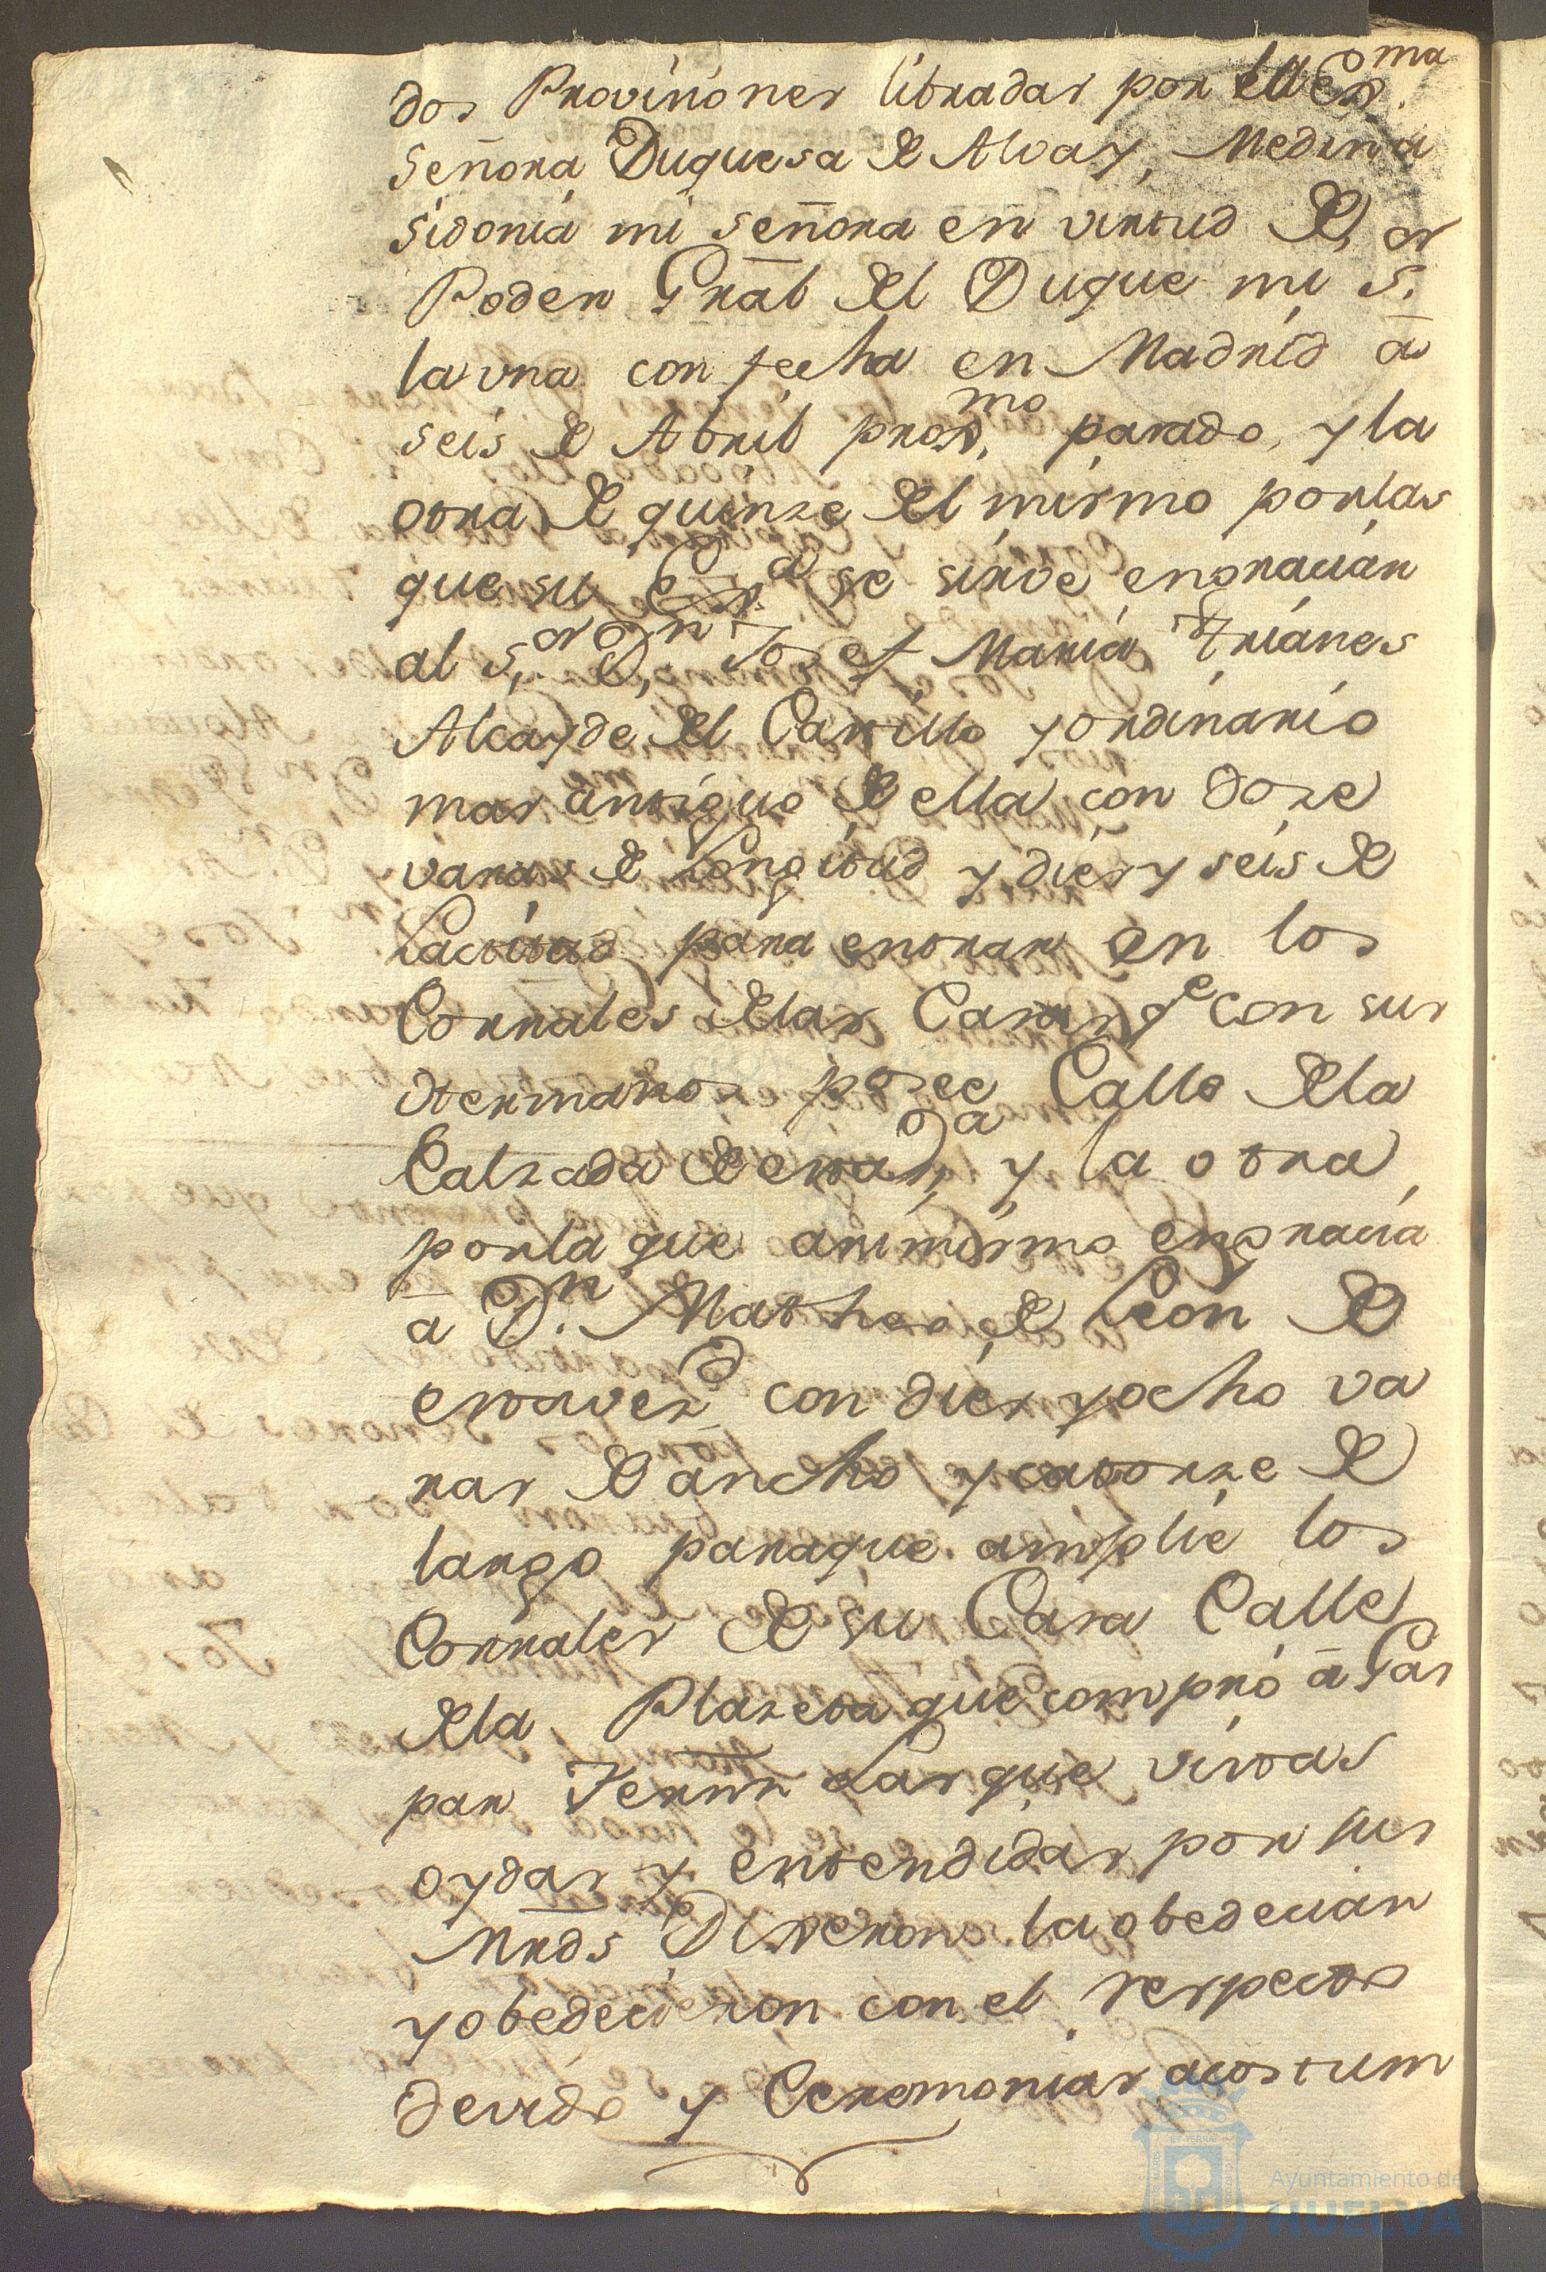 dos Provisiones libradas por la Ex.ma
señora Duquesa de Alva y, Medina
sidonia mi señora en virtud de
Poder Gñal del Duque mi S.or
la una con fecha en Madrid a
seis de Abril prox.mo pasado, y la
otra de quinze del mismo por las
que su Ex.a se sirve engraciar
al S.or D.n Josef Maria Trianes
Alcayde del Castillo y ordinario
mas antiguo de ella con doze
varas de Longitud y diez y seis de
Lactitud para entrar en los
Corrales de las Casas q.e con sus
Hermanos posee Calle de la
Calzada de esta, y la otra
por la que asimismo engracia
a D.n Matheo de Leon de
esta vez.d con diez y ocho va
ras de ancho y catorze de
largo para que amplie los
Corrales de su Casa Calle
de la Plazeta que compró a Gas
par Ferrer Las que vistas
oydas y entendidas por sus
Mrds Dixeron la obedecian
y obedecieron con el respecto
devido y Ceremonias acostum
Ayuntamiento de
HUELVA